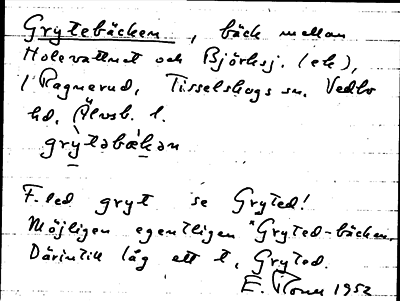 Grytebäcken, bäck mellan
Holevattnet och Björksj. (ek),
i Ragnerud, Tisselskogs sn. Vedbo
hd. Älvsb. l.
grỳtəbækən
F. led gryt se Gryted!
Möjligen egentligen *Gryted-bäcken.
Därintill låg ett t. Gryted.
E. 1952